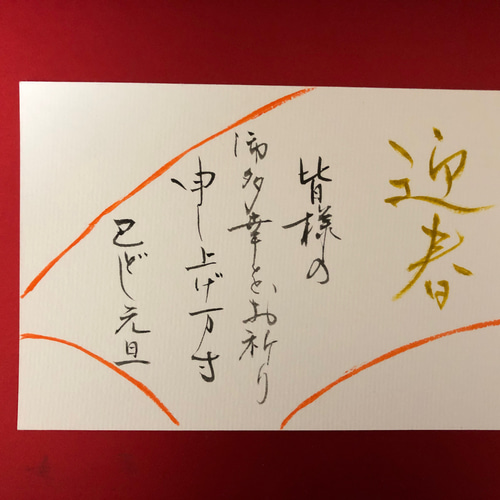 迎春
皆様の
御多幸をお祈り
申し上げ万寸
巳どし元旦